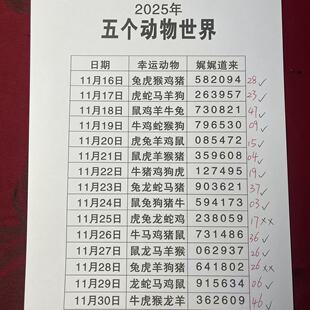 2025年
五个动物世界
日期 幸运动物 娓娓道来
11月16日 兔虎猴鸡猪 582094 28✓
11月17日 虎蛇马羊狗 263957 23✓
11月18日 鼠鸡羊牛兔 730821 47✓
11月19日 牛鸡蛇猴狗 796530 09✓
11月20日 虎兔羊鸡鼠 085472 15✓
11月21日 鼠虎羊猴猪 359608 04✓
11月22日 牛猪鸡狗虎 127495 19✓
11月23日 兔龙蛇马猪 903621 37✓
11月24日 鼠兔狗猪牛 594173 03✓
11月25日 虎兔龙蛇鸡 238059 17××
11月26日 牛马鸡猪鼠 451786 36✓
11月27日 鼠龙马羊猴 062937 26✓
11月28日 兔虎羊狗猪 641802 26××
11月29日 龙蛇马鸡鼠 915634 06✓
11月30日 牛虎猴龙羊 362609 46✓